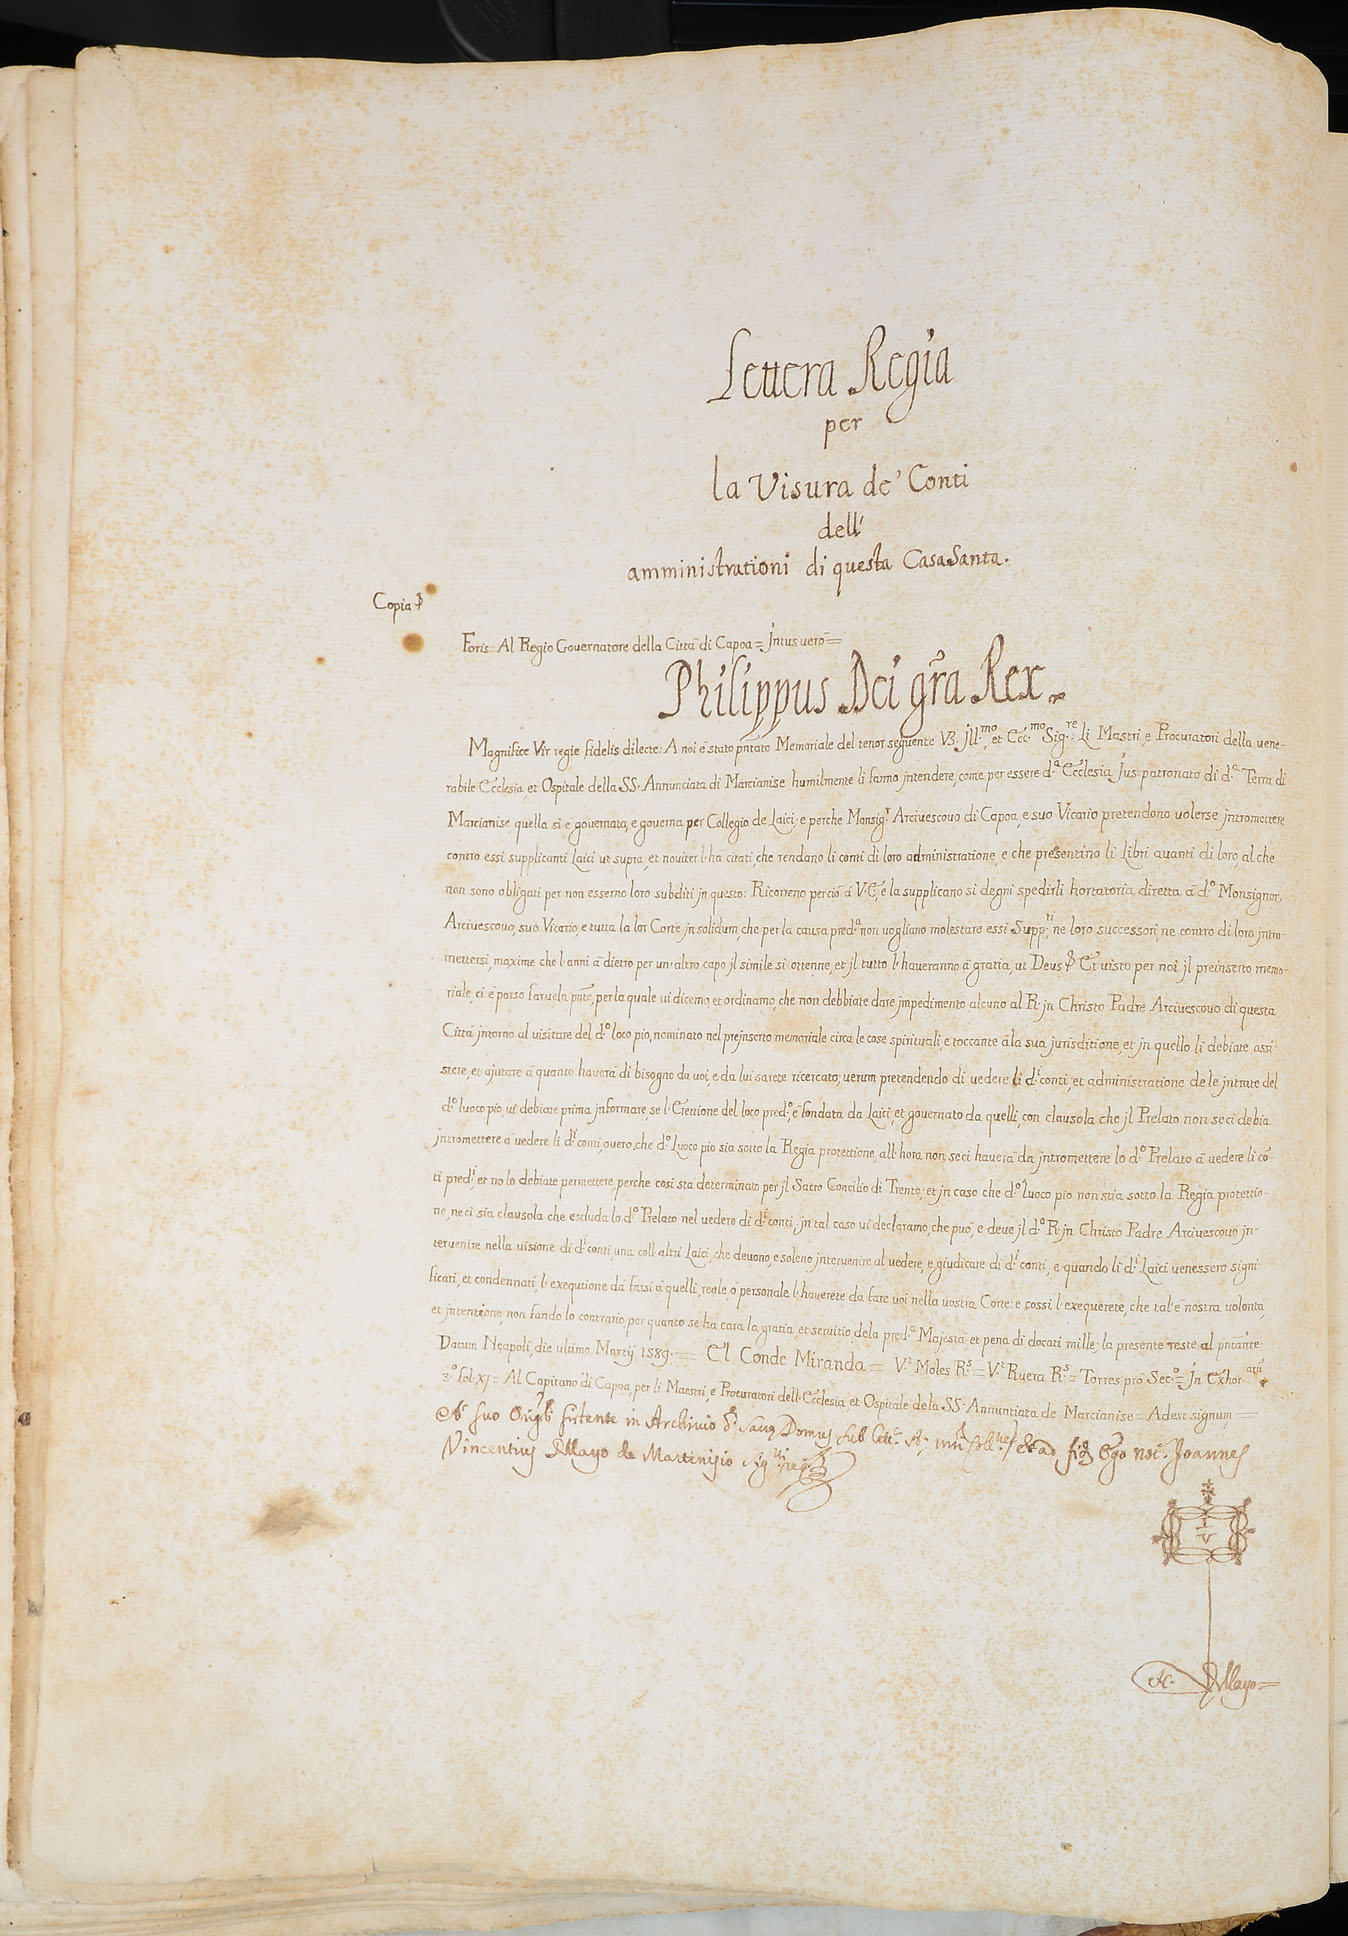 Lettera Regia
per
la Visura de' Conti
dell'
amministrationi di questa Casa Santa.
Copia
Foris = Al Regio Governatore della Cittã di Capoa = Jntus vero =
Philippus Dei grã Rex.
Magnifice Vir regie fidelis dilecte: A noi è stato pñtato Memoriale del tenor seguente Vz. Jll.mo, et Ecc.mo Sig.re: Li Mastri, e Procuratori della vene-
rabile Ecclesia, et Ospitale della SS. Annunciata di Marcianise humilmente li fanno jntendere, come per essere d.a Ecclesia Jus patronato di d.a Terra di
Marcianise quella si è governata, e governa per Collegio de Laici, e perche Monsig.r Arcivescovo di Capoa, e suo Vicario pretendono volerse jntromettere
contro essi supplicanti Laici ut supra, et noviter l'hà citati, che rendano li conti di loro administratione, e che presentino li Libri avanti di loro, al che
non sono obligati per non esserno loro subditi jn questo: Ricorreno perciò à V.E, e la supplicano si degni spedirli hortatoria diretta à d.o Monsignor,
Arcivescovo, suo Vicario, e tutta la lor Corte jn solidum, che per la causa pred.a non vogliano molestare essi Supp.ti, ne loro successori, ne contro di loro jntro-
mettersi, maxime che l'anni à dietro per un'altro capo jl simile si ottenne, et jl tutto l'haveranno à gratia, ut Deus Et visto per noi jl preinserto memo-
riale, ci è parso farvela pñte, per la quale vi dicemo, et ordinamo, che non debbiate dare jmpedimento alcuno al R. jn Christo Padre Arcivescovo di questa
Città jntorno al visitare del d.o loco pio, nominato nel prejnserto memoriale circa le cose spirituali, e toccante à la sua jurisditione, et jn quello li debiate assi-
stere, et ajutare à quanto haverà di bisogno da voi, e da lui sarete ricercato, verum pretendendo di vedere li d.i conti, et administratione de le jntrate del
d.o luoco pio, vi debiate prima jnformare, se l'Erettione del loco pred.o, è fondata da Laici, et governato da quelli, con clausola che jl Prelato non se ci debia
jntromettere à vedere li d.i conti, overo che d.o Luoco pio sia sotto la Regia protettione, all'hora non se ci haverà da jntromettere lo d.o Prelato à vedere li cõ-
ti pred.i, et no lo debiate permettere, perche cosi sta determinato per jl Sacro Concilio di Trento, et jn caso che d.o luoco pio non stia sotto la Regia protettio-
ne, ne ci sia clausola che escluda lo d.o Prelato nel vedere di d.i conti, jn tal caso vi declaramo, che può, e deve jl d.o R. jn Christo Padre Arcivescovo jn-
tervenire nella visione di d.i conti, una coll'altri Laici, che devono, e soleno jntervenire al vedere, e giudicare di d.i conti, e quando li d.i Laici venessero signi-
ficati, et condennati, l'exequtione da farsi à quelli, reale, ò personale l'haverete da fare voi nella vostra Corte: e cossì l'exequerete, che tal'è nostra volontà,
et jntentione, non fando lo contrario, per quanto se hà cara la gratia, et servitio dela pred.a Majestà, et pena di docati mille; la presente reste al pñtante.
Datum Neapoli, die ultimo Martij 1589. = El Conde Miranda = V.t Moles R.s = V.t Ruera R.s = Torres pro Sec.o = Jn Exhor.
3.o fol. xj = Al Capitano di Capoa, per li Maestri, e Procuratori dell'Ecclesia, et Ospitale de la SS. Annuntiata de Marcianise = Adest signum =
Ab suo Orig.li sistente in Archivio Domus sub Ego Not. Joannes
Vincentius Mayo de Martenisio
I
V
Mayo